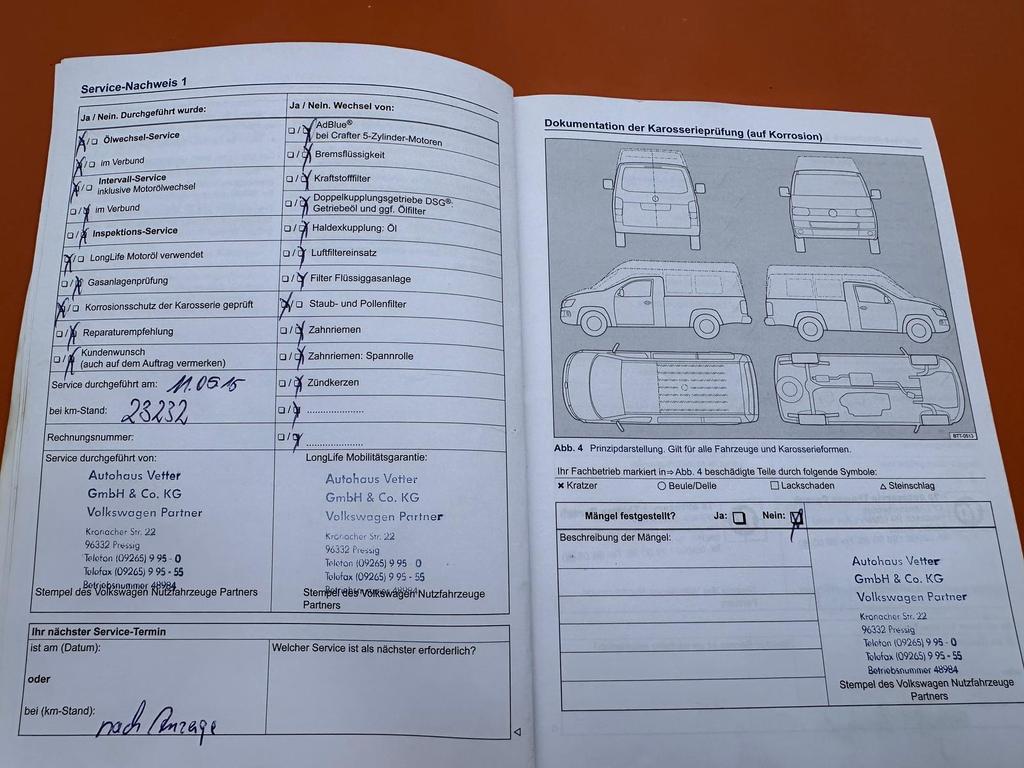 Service-Nachweis 1
Ja / Nein. Durchgeführt wurde:
Ölwechsel-Service
im Verbund
Intervall-Service
inklusive Motorölwechsel
im Verbund
Inspektions-Service
LongLife Motoröl verwendet
Gasanlagenprüfung
Korrosionsschutz der Karosserie geprüft
Reparaturempfehlung
Kundenwunsch
(auch auf dem Auftrag vermerken)
Service durchgeführt am: 11.05.15
bei km-Stand: 23232
Rechnungsnummer:
Service durchgeführt von:
Autohaus Vetter
GmbH & Co. KG
Volkswagen Partner
Kronacher Str. 22
96332 Pressig
Telefon (09265) 9 95 - 0
Telefax (09265) 9 95 - 55
Betriebsnummer 48984
Stempel des Volkswagen Nutzfahrzeuge Partners
Ja / Nein. Wechsel von:
AdBlue®
bei Crafter 5-Zylinder-Motoren
Bremsflüssigkeit
Kraftstofffilter
Doppelkupplungsgetriebe DSG®:
Getriebeöl und ggf. Ölfilter
Haldexkupplung: Öl
Luftfiltereinsatz
Filter Flüssiggasanlage
Staub- und Pollenfilter
Zahnriemen
Zahnriemen: Spannrolle
Zündkerzen
LongLife Mobilitätsgarantie:
Autohaus Vetter
GmbH & Co. KG
Volkswagen Partner
Kronacher Str. 22
96332 Pressig
Telefon (09265) 9 95 0
Telefax (09265) 9 95 - 55
Betriebsnummer 48984
Stempel des Volkswagen Nutzfahrzeuge
Partners
Ihr nächster Service-Termin
ist am (Datum):
oder
bei (km-Stand): nach Anzage
Welcher Service ist als nächster erforderlich?
Dokumentation der Karosserieprüfung (auf Korrosion)
BTT-0513
Abb. 4 Prinzipdarstellung. Gilt für alle Fahrzeuge und Karosserieformen.
Ihr Fachbetrieb markiert in ⇒ Abb. 4 beschädigte Teile durch folgende Symbole:
× Kratzer ○ Beule/Delle □ Lackschaden △ Steinschlag
Mängel festgestellt? Ja: Nein:
Beschreibung der Mängel:
Autohaus Vetter
GmbH & Co. KG
Volkswagen Partner
Kronacher Str. 22
96332 Pressig
Telefon (09265) 9 95 - 0
Telefax (09265) 9 95 - 55
Betriebsnummer 48984
Stempel des Volkswagen Nutzfahrzeuge
Partners